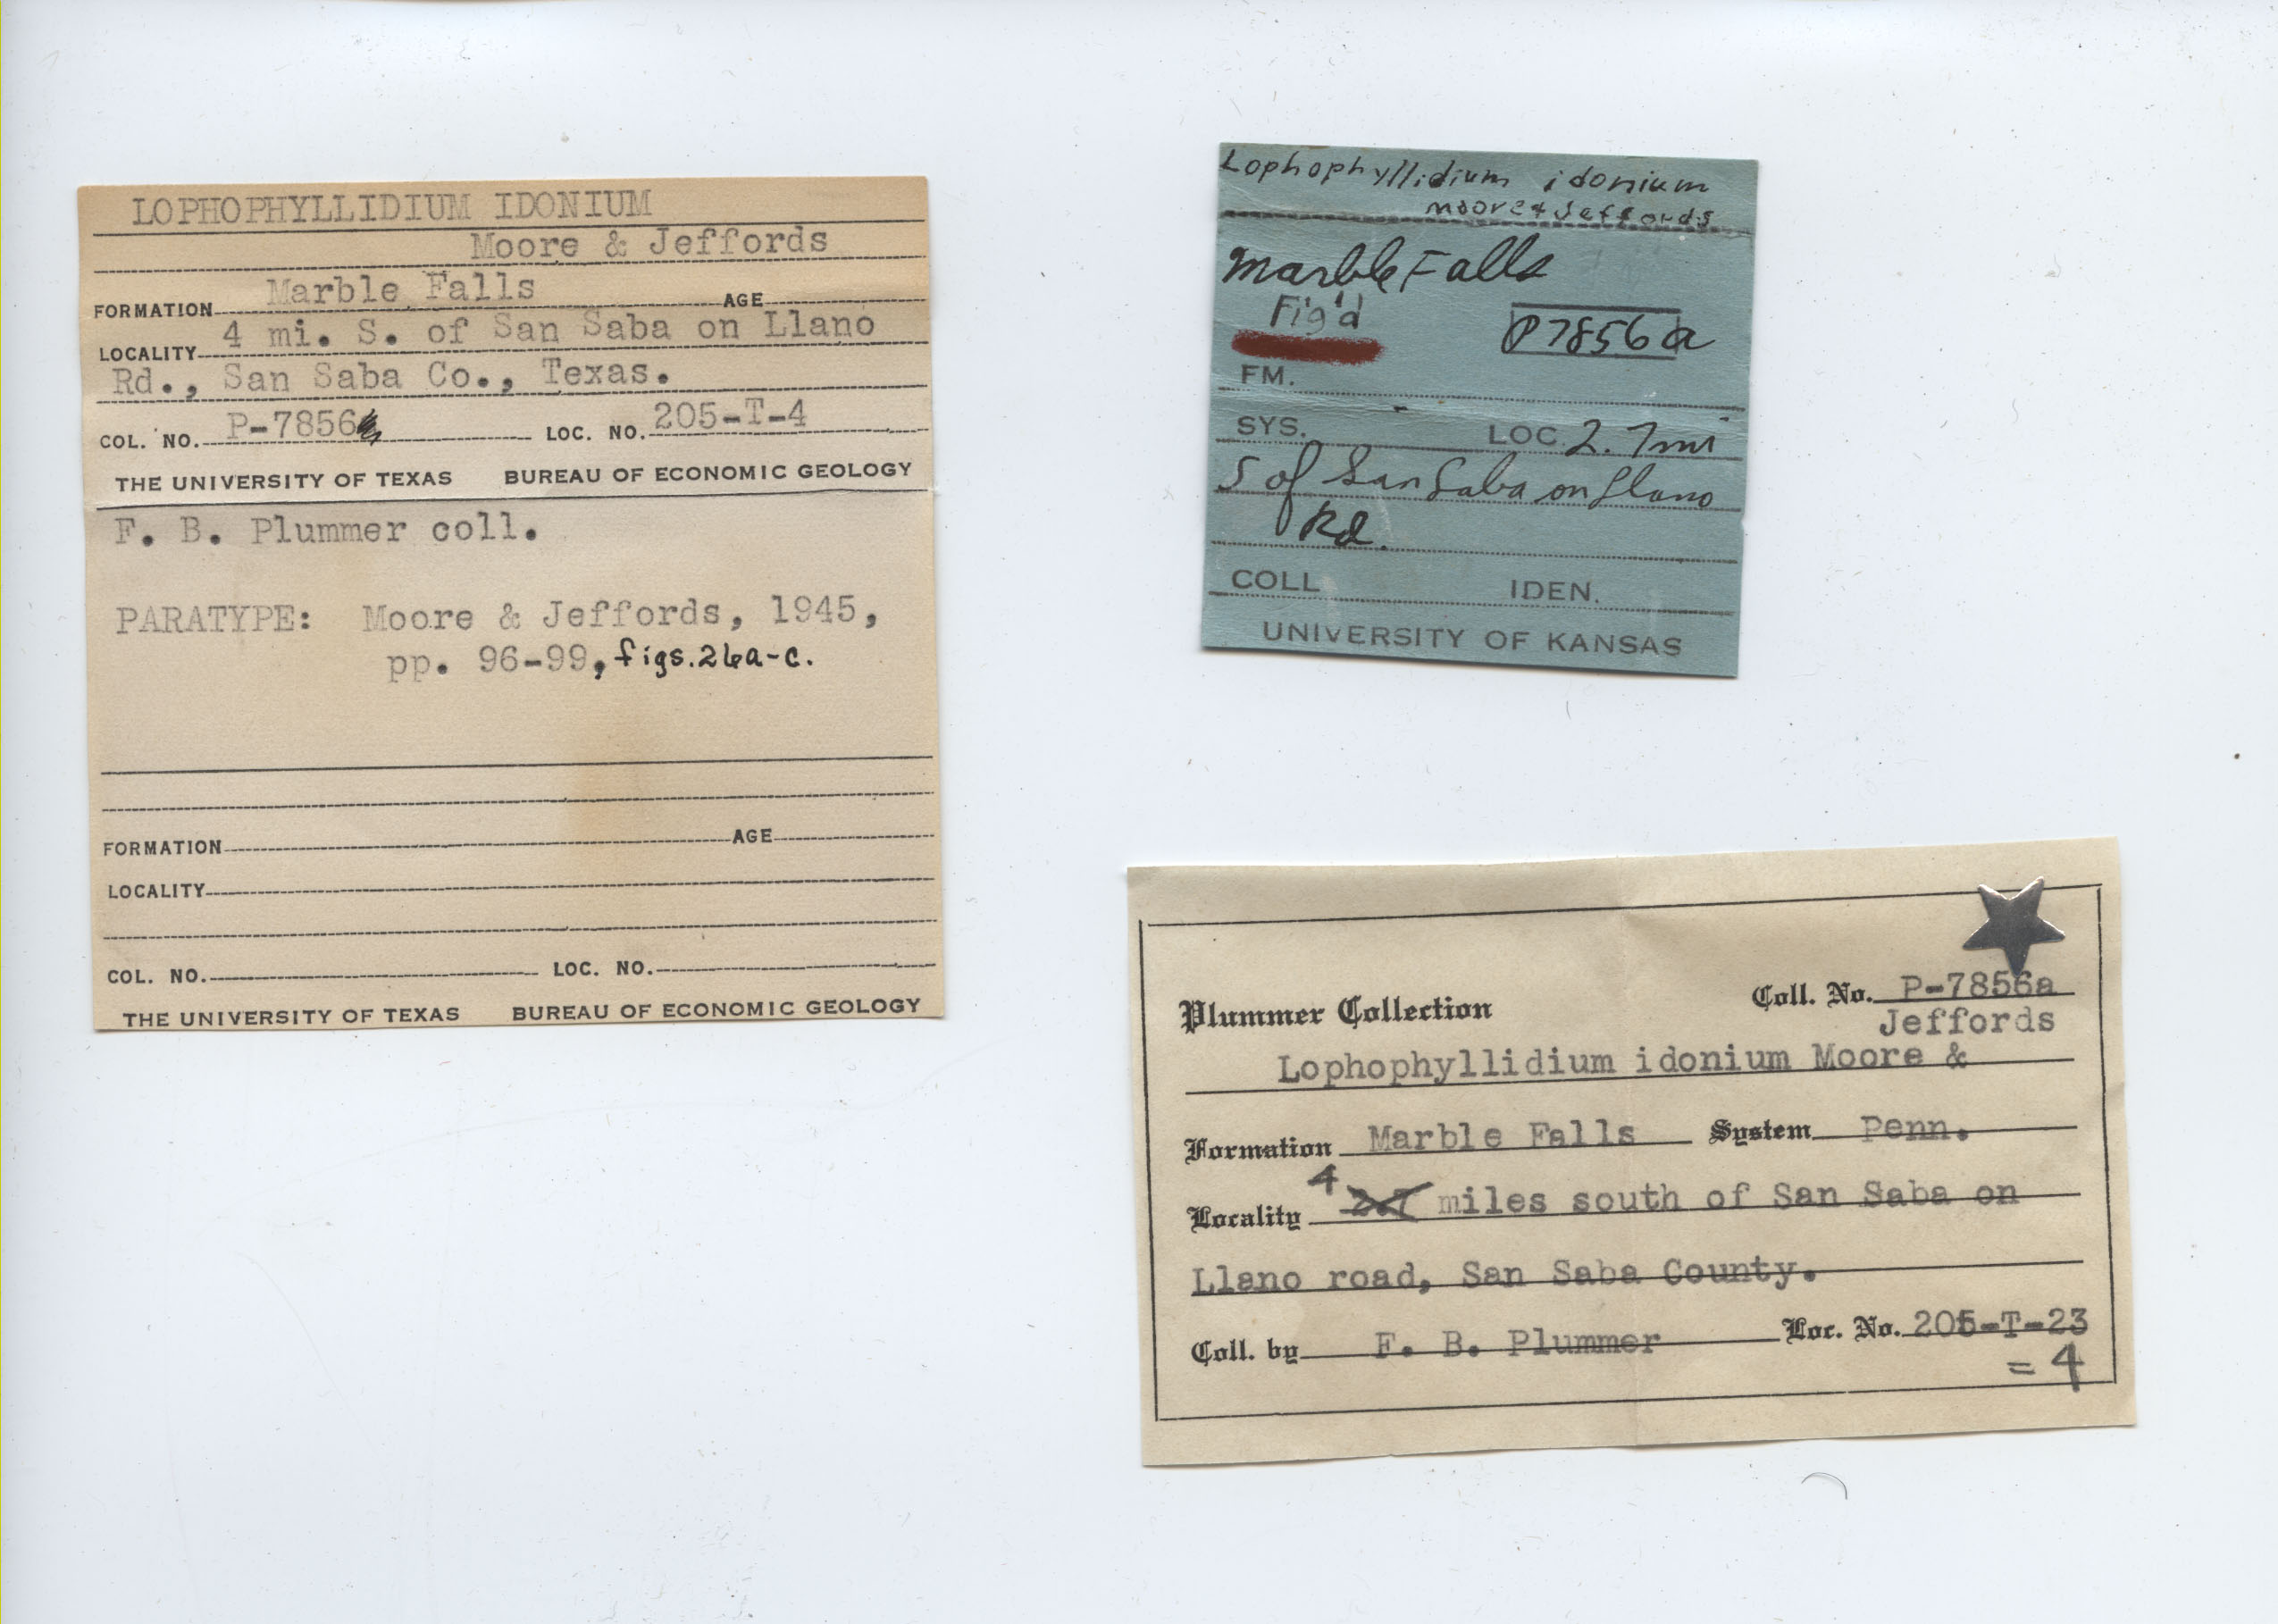 LOPHOPHYLLIDIUM IDONIUM
Moore & Jeffords
FORMATION Marble Falls AGE
LOCALITY 4 mi. S. of San Saba on Llano
Rd., San Saba Co., Texas.
COL. NO. P-7856 LOC. NO. 205-T-4
THE UNIVERSITY OF TEXAS BUREAU OF ECONOMIC GEOLOGY
F. B. Plummer coll.
PARATYPE: Moore & Jeffords, 1945,
pp. 96-99, figs. 26a-c.
FORMATION AGE
LOCALITY
COL. NO. LOC. NO.
THE UNIVERSITY OF TEXAS BUREAU OF ECONOMIC GEOLOGY
Lophophyllidium idonium
Moore & Jeffords
Marble Falls
Fig'd
P7856a
FM.
SYS. LOC. 2.7 mi
S of San Saba on Llano
Rd.
COLL IDEN.
UNIVERSITY OF KANSAS
Plummer Collection Coll. No. P-7856a
Jeffords
Lophophyllidium idonium Moore &
Formation Marble Falls System Penn.
Locality 4 2.7 miles south of San Saba on
Llano road, San Saba County.
Coll. by F. B. Plummer Loc. No. 205-T-23
= 4